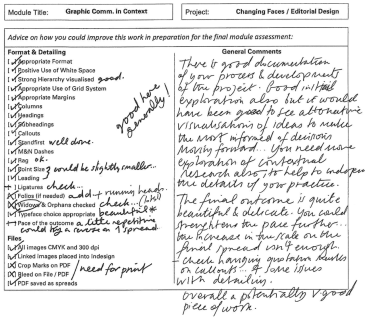 Module Title: Graphic Comm. in Context
Project: Changing Faces / Editorial Design
Advice on how you could improve this work in preparation for the final module assessment:
Format & Detailing
Appropriate Format
Positive Use of White Space
Strong Hierarchy visualised good.
Appropriate Use of Grid System
Appropriate Margins
Columns
Headings
Subheadings
Callouts
Standfirst well done.
M&N Dashes
Rag ok.
Point Size } could be slightly smaller..
Leading
Ligatures check...
Folios (if needed) add + running heads.
Widows & Orphans checked check...
Typeface choice appropriate beautiful*
Pace of the outcome a little repetitive
could try a reverse on 1 spread
good here generally!
Files
All images CMYK and 300 dpi
Linked images placed into Indesign
Crop Marks on PDF
Bleed on File / PDF
/ need for print
PDF saved as spreads
General Comments
There is good documentation
of your process & developments
of the project. Good initial
exploration also but it would
have been good to see alternative
visualisations of ideas to make
the most informed of decisions
moving forward. You need more
exploration of contextual
research also, to help to
the details of your practice.
The final outcome is quite
beautiful & delicate. You could
strengthen the pace further..
the increase in the scale on the
final spread isn't enough.
- check hanging quotation marks
on callouts... & some issues
with detailing.
overall a potentially v good
piece of work.